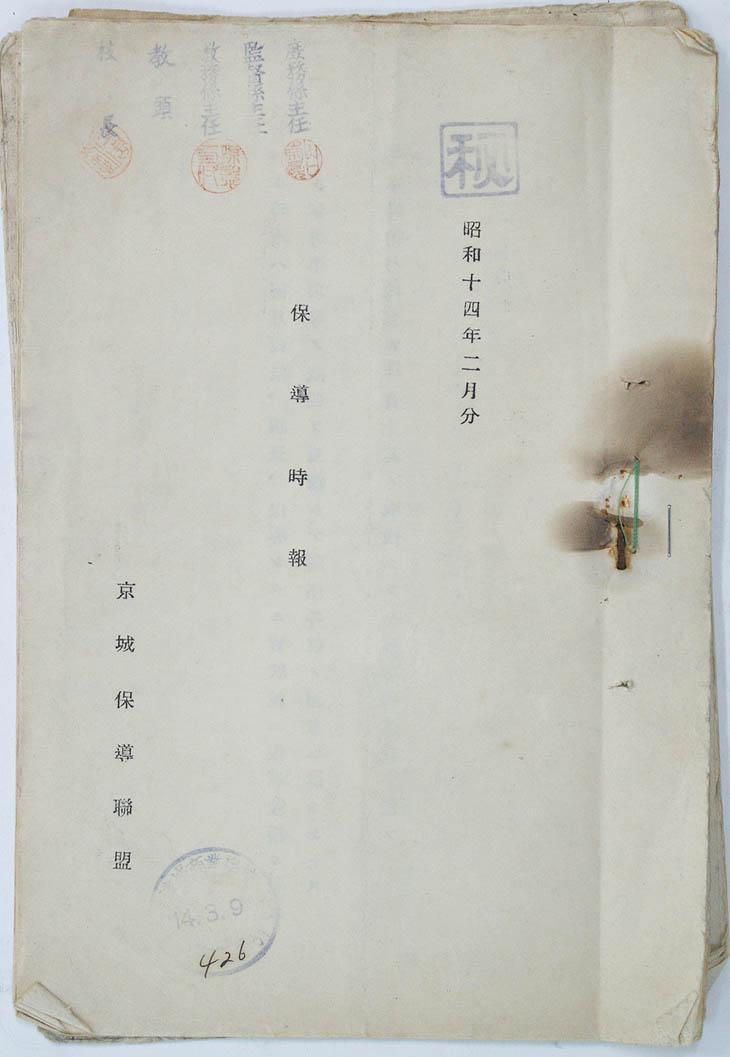 秘
昭和十四年二月分
庶務係主任
監督係主任
教務係主任
教頭
校長
保導時報
京城保導聯盟
14.3.9
426